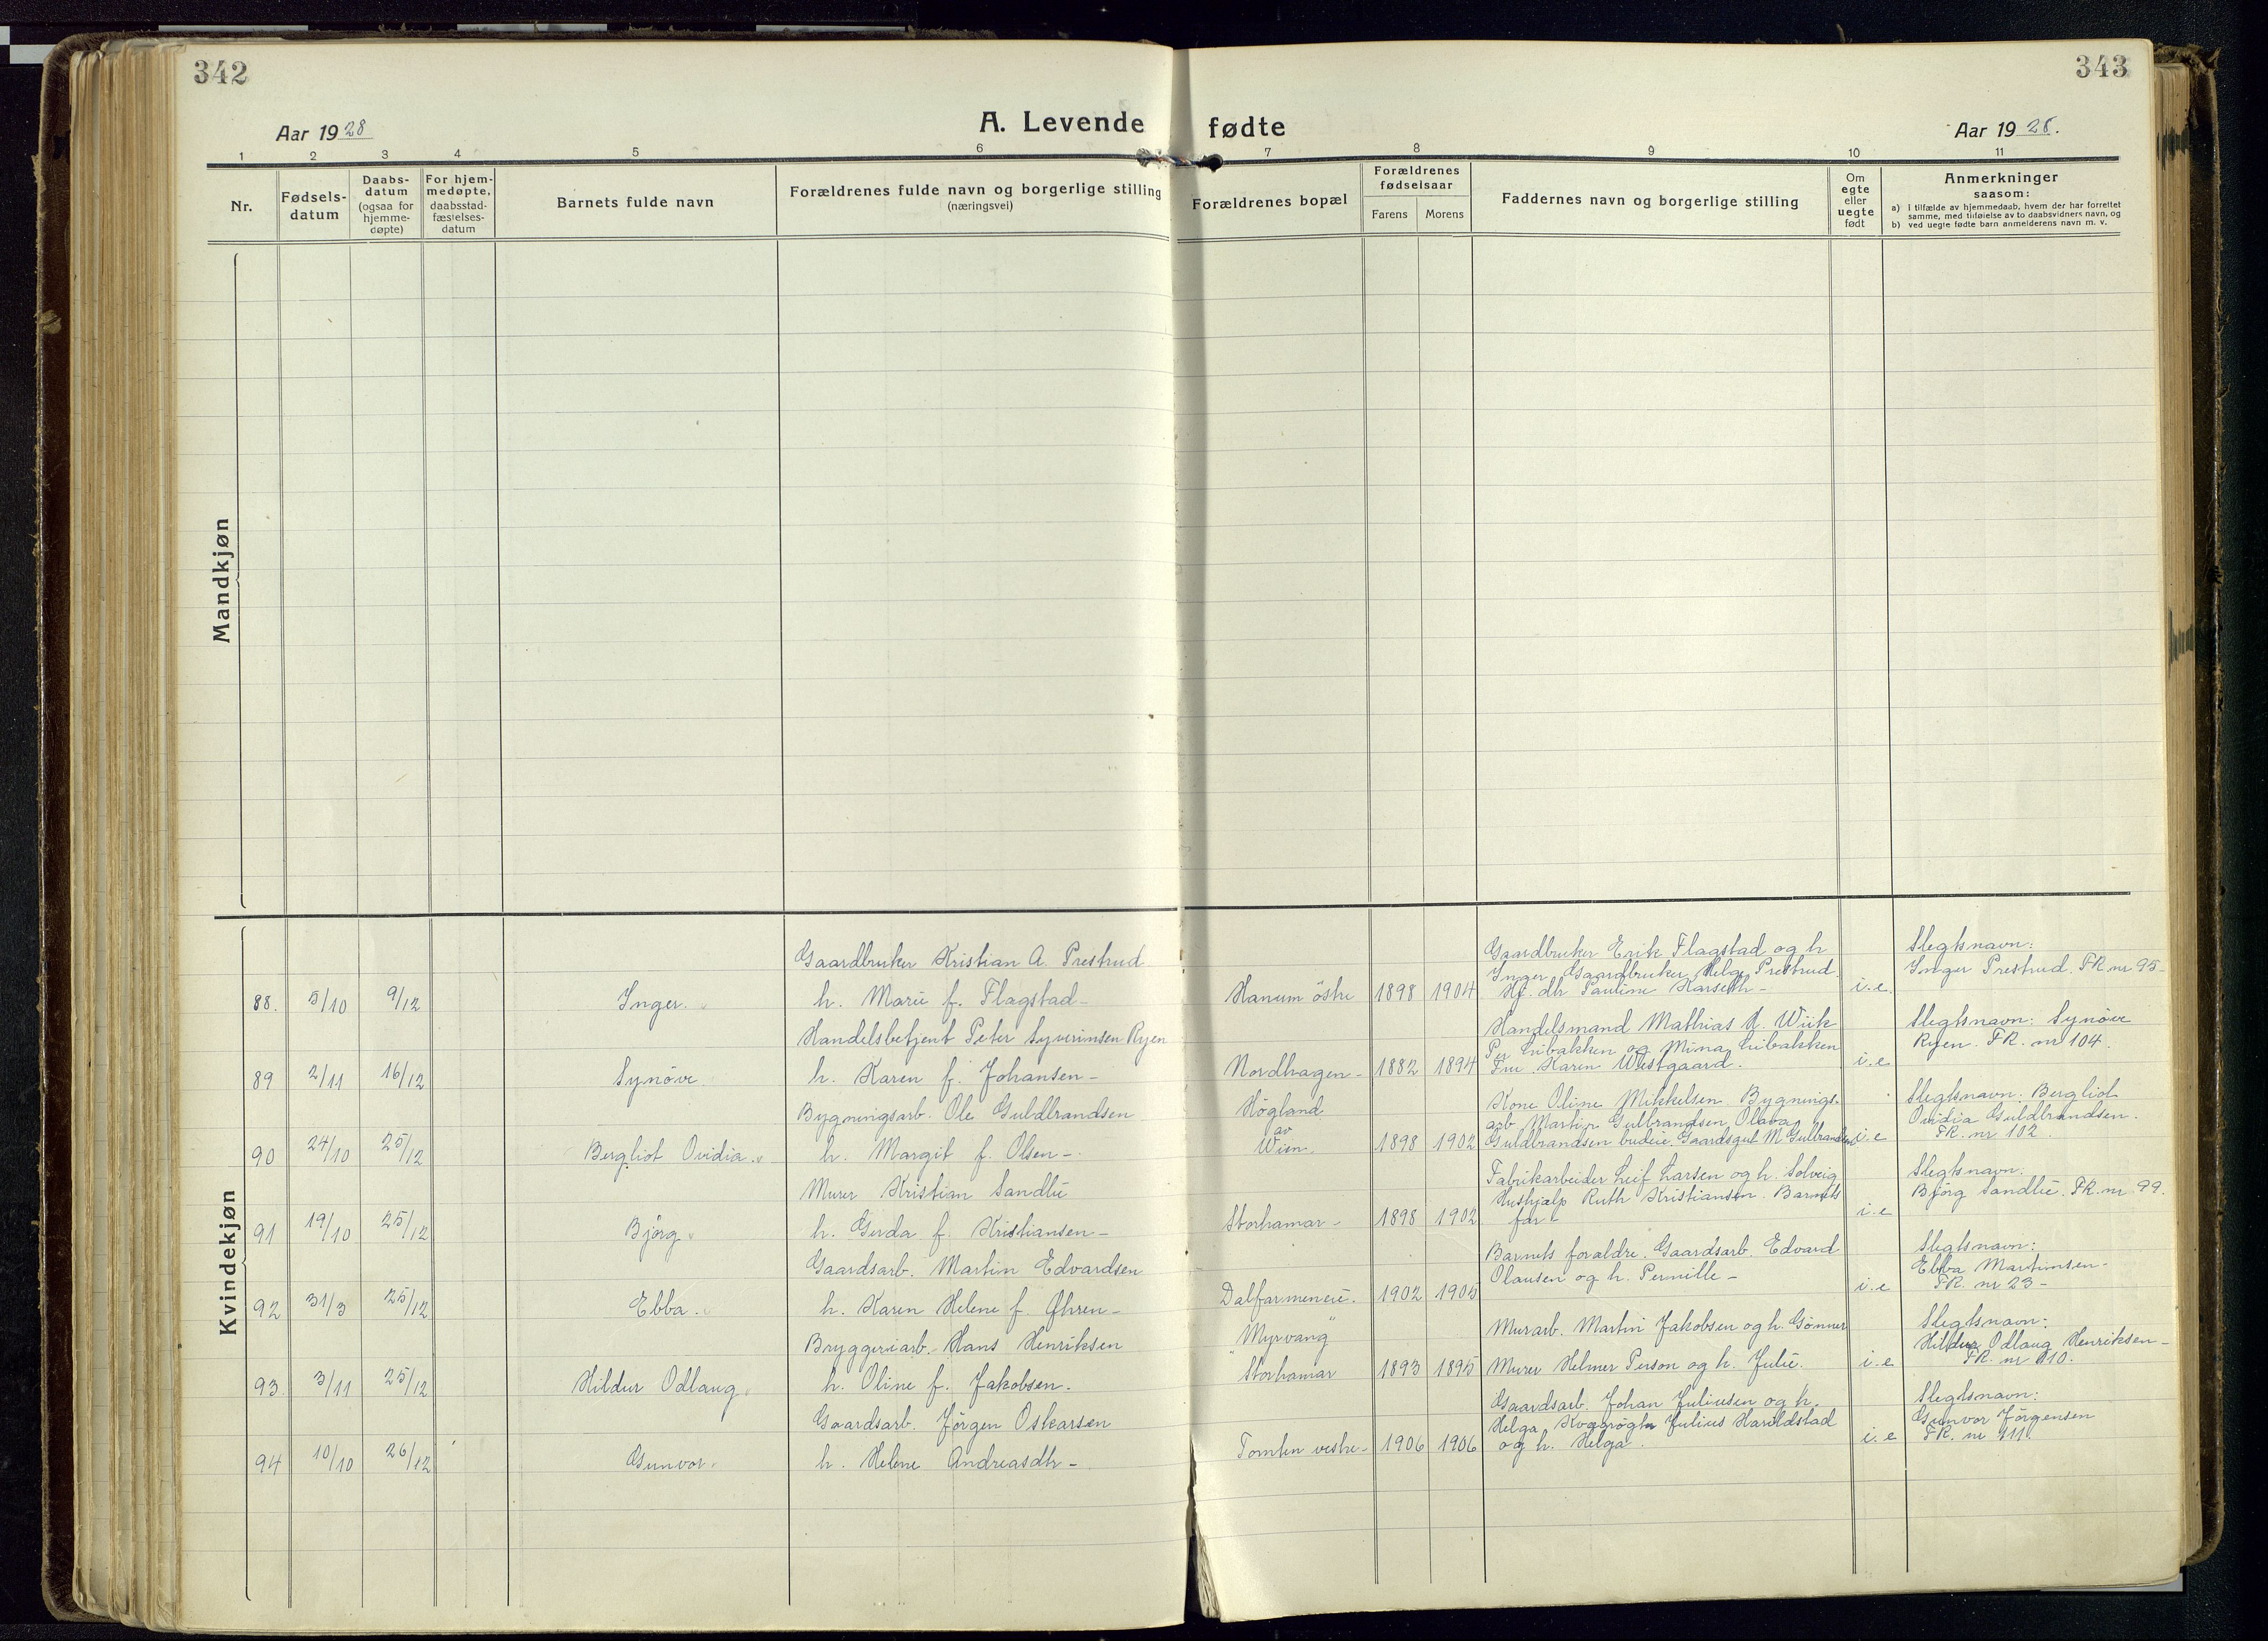 342
343
Aar 1928
A. Levende fødte
Aar 1928.
1 2 3 4 5 6 7 8 9 10 11
Nr.
Fødsels-
datum
Daabs-
datum
(ogsaa for
hjemme-
døpte)
For hjem-
medøpte,
daabsstad-
fæstelses-
datum
Barnets fulde navn
Forældrenes fulde navn og borgerlige stilling
(næringsvei)
Forældrenes bopæl
Forældrenes
fødselsaar
Farens Morens
Faddernes navn og borgerlige stilling
Om
egte
eller
uegte
født
Anmerkninger
saasom:
a) I tilfælde av hjemmedaab, hvem der har forrettet
samme, med tilføielse av to daabsvidners navn, og
b) ved uegte fødte barn anmelderens navn m. v.
Mandkjøn
Kvindekjøn
88. 5/10 9/12 Inger.
Gaardbruker Kristian A. Prestrud
h. Marie f. Flagstad-
Hanum östre 1898 1904
Gaardbruker Erik Flagstad og h
Inger. Gaardbruker Helge Prestrud.
Hf. dh Pauline Karseth-
i.e.
Slegtsnavn:
Inger Prestrud. FR. nr 95-
89 2/11 16/12 Synöve
Handelsbetjent Peter Syverinsen Ryen
h. Karen f. Johansen-
Nordhagen- 1882 1894
Handelsmand Mathias A. Wiik
Per Libakken og Mina Libakken
Fru Karen Westgaard.
i.e
Slegtsnavn: Synöve
Ryen. FR. nr 104.
90 24/10 25/12 Bergliot Ovidia.
Bygningsarb. Ole Guldbrandsen
h. Margit f. Olsen-
Högland
av
Wien. 1898 1902
Kone Oline Mikkelsen. Bygnings-
arb Martin Gulbrandsen, Olava
Guldbrandsen budeie. Gaardsgut M Gulbrandsen
i.e
Slegtsnavn. Bergliot
Ovidia Guldbrandsen.
FR. nr 102.
91 19/10 25/12 Björg
Murer Kristian Sandlie
h. Gerda f. Kristiansen-
Storhamar- 1898 1902
Fabrikarbeider Leif Larsen og h. Solveig
Hushjælp Ruth Kristiansen. Barnets
far-
i.e
Slegtsnavn:
Björg Sandlie. FR. nr 99.
92 31/3 25/12 Ebba.
Gaardsarb. Martin Edvardsen
h. Karen Helene f. Øhren-
Dalfarmeneie. 1902 1905
Barnets foraldre. Gaardsarb. Edvard
Olausen og h. Pernille-
i.e
Slegtsnavn:
Ebba Martinsen-
FR. nr 23-
93. 3/11 25/12 Hildur Odlaug
Bryggeriarb. Hans Henriksen
h. Oline f. Jakobsen.
"Myrvang"
Storhamar 1893 1895
Murarb. Martin Jakobsen og h. Gönner
Murer Helmer Person og h. Julie.
i.e
Slegtsnavn:
Hildur Odlaug Henriksen-
FR. nr 110.
94 10/10 26/12 Gunvor
Gaardsarb. Jörgen Oskarsen
h. Helene Andreasdh-
Tomten vestre- 1906 1906
Gaardsarb. Johan Juliusen og h.
Helga Julius Haroldstad
og h. Helga.
i.e
Slegtsnavn:
Gunvor Jörgensen
FR. nr 111.